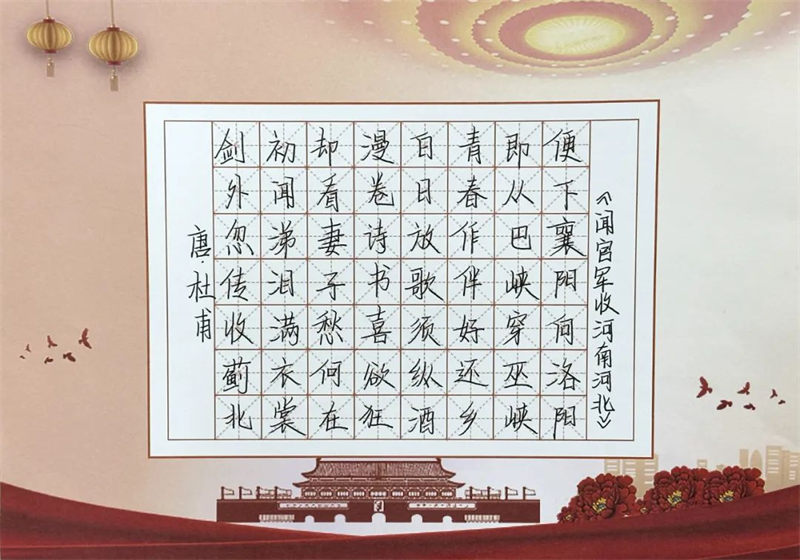 《闻官军收河南河北》
唐·杜甫
剑外忽传收蓟北
初闻涕泪满衣裳
却看妻子愁何在
漫卷诗书喜欲狂
白日放歌须纵酒
青春作伴好还乡
即从巴峡穿巫峡
便下襄阳向洛阳